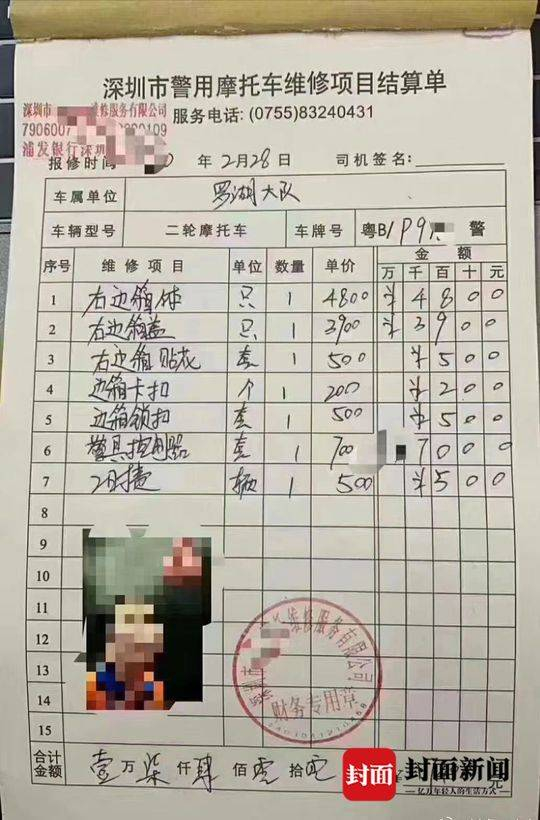 深圳市警用摩托车维修项目结算单
深圳市 维修服务有限公司
服务电话: (0755)83240431
7906007
浦发银行深圳
报修时间 年 2月28日 司机签名:
车属单位 罗湖大队
车辆型号 二轮摩托车 车牌号 粤B1P9 警
序号 维修项目 单位 数量 单价 金额
万 千 百 十 元
1 右边箱体 只 1 4800 ¥ 4 8 0 0
2 右边箱盖 只 1 3900 ¥ 3 9 0 0
3 右边箱贴花 套 1 500 ¥ 5 0 0
4 边箱卡扣 个 1 200 ¥ 2 0 0
5 边箱锁扣 套 1 500 ¥ 5 0 0
6 警具控制器 套 1 700 7 0 0
7 工时费 辆 1 500 ¥ 5 0 0
8
9
10
11
12
13
14
15
维修服务有限公司
财务专用章
合计金额 壹万柒仟肆佰零拾零 元
封面 封面新闻
亿万年轻人的生活方式